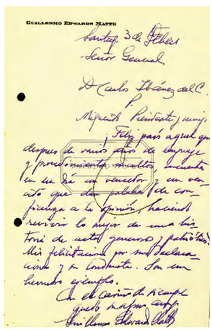 GUILLERMO EDWARDS MATTE
Santiago 3 de Febrero
Señor General
D. Carlos Ibáñez del C.
Presidente y amigo
¡Feliz país aquel que
después de varios años de
y procedimientos ocultos encuentra
en un
cito que dan palabra de con
fianza a la opinión, haciendo
revivir lo mejor de una his
toria de actos generosos y patrióticos!
Mis felicitaciones por sus declara
ciones y su conducta. Son un
hermoso ejemplo.
Con el cariño de siempre
quedo su afmo. amigo
Guillermo Edwards Matte